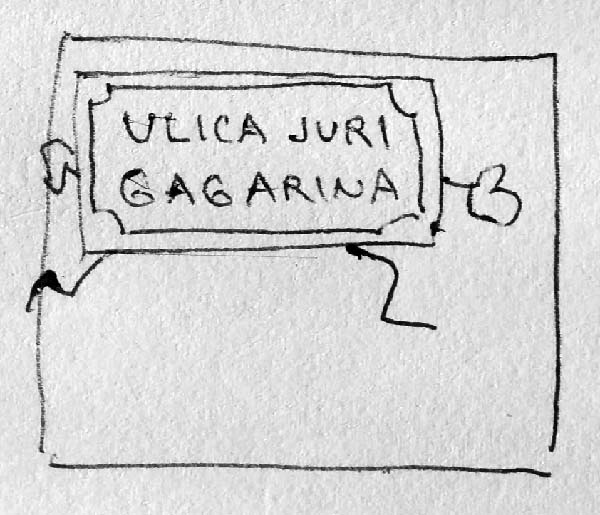 ULICA JURI
GAGARINA